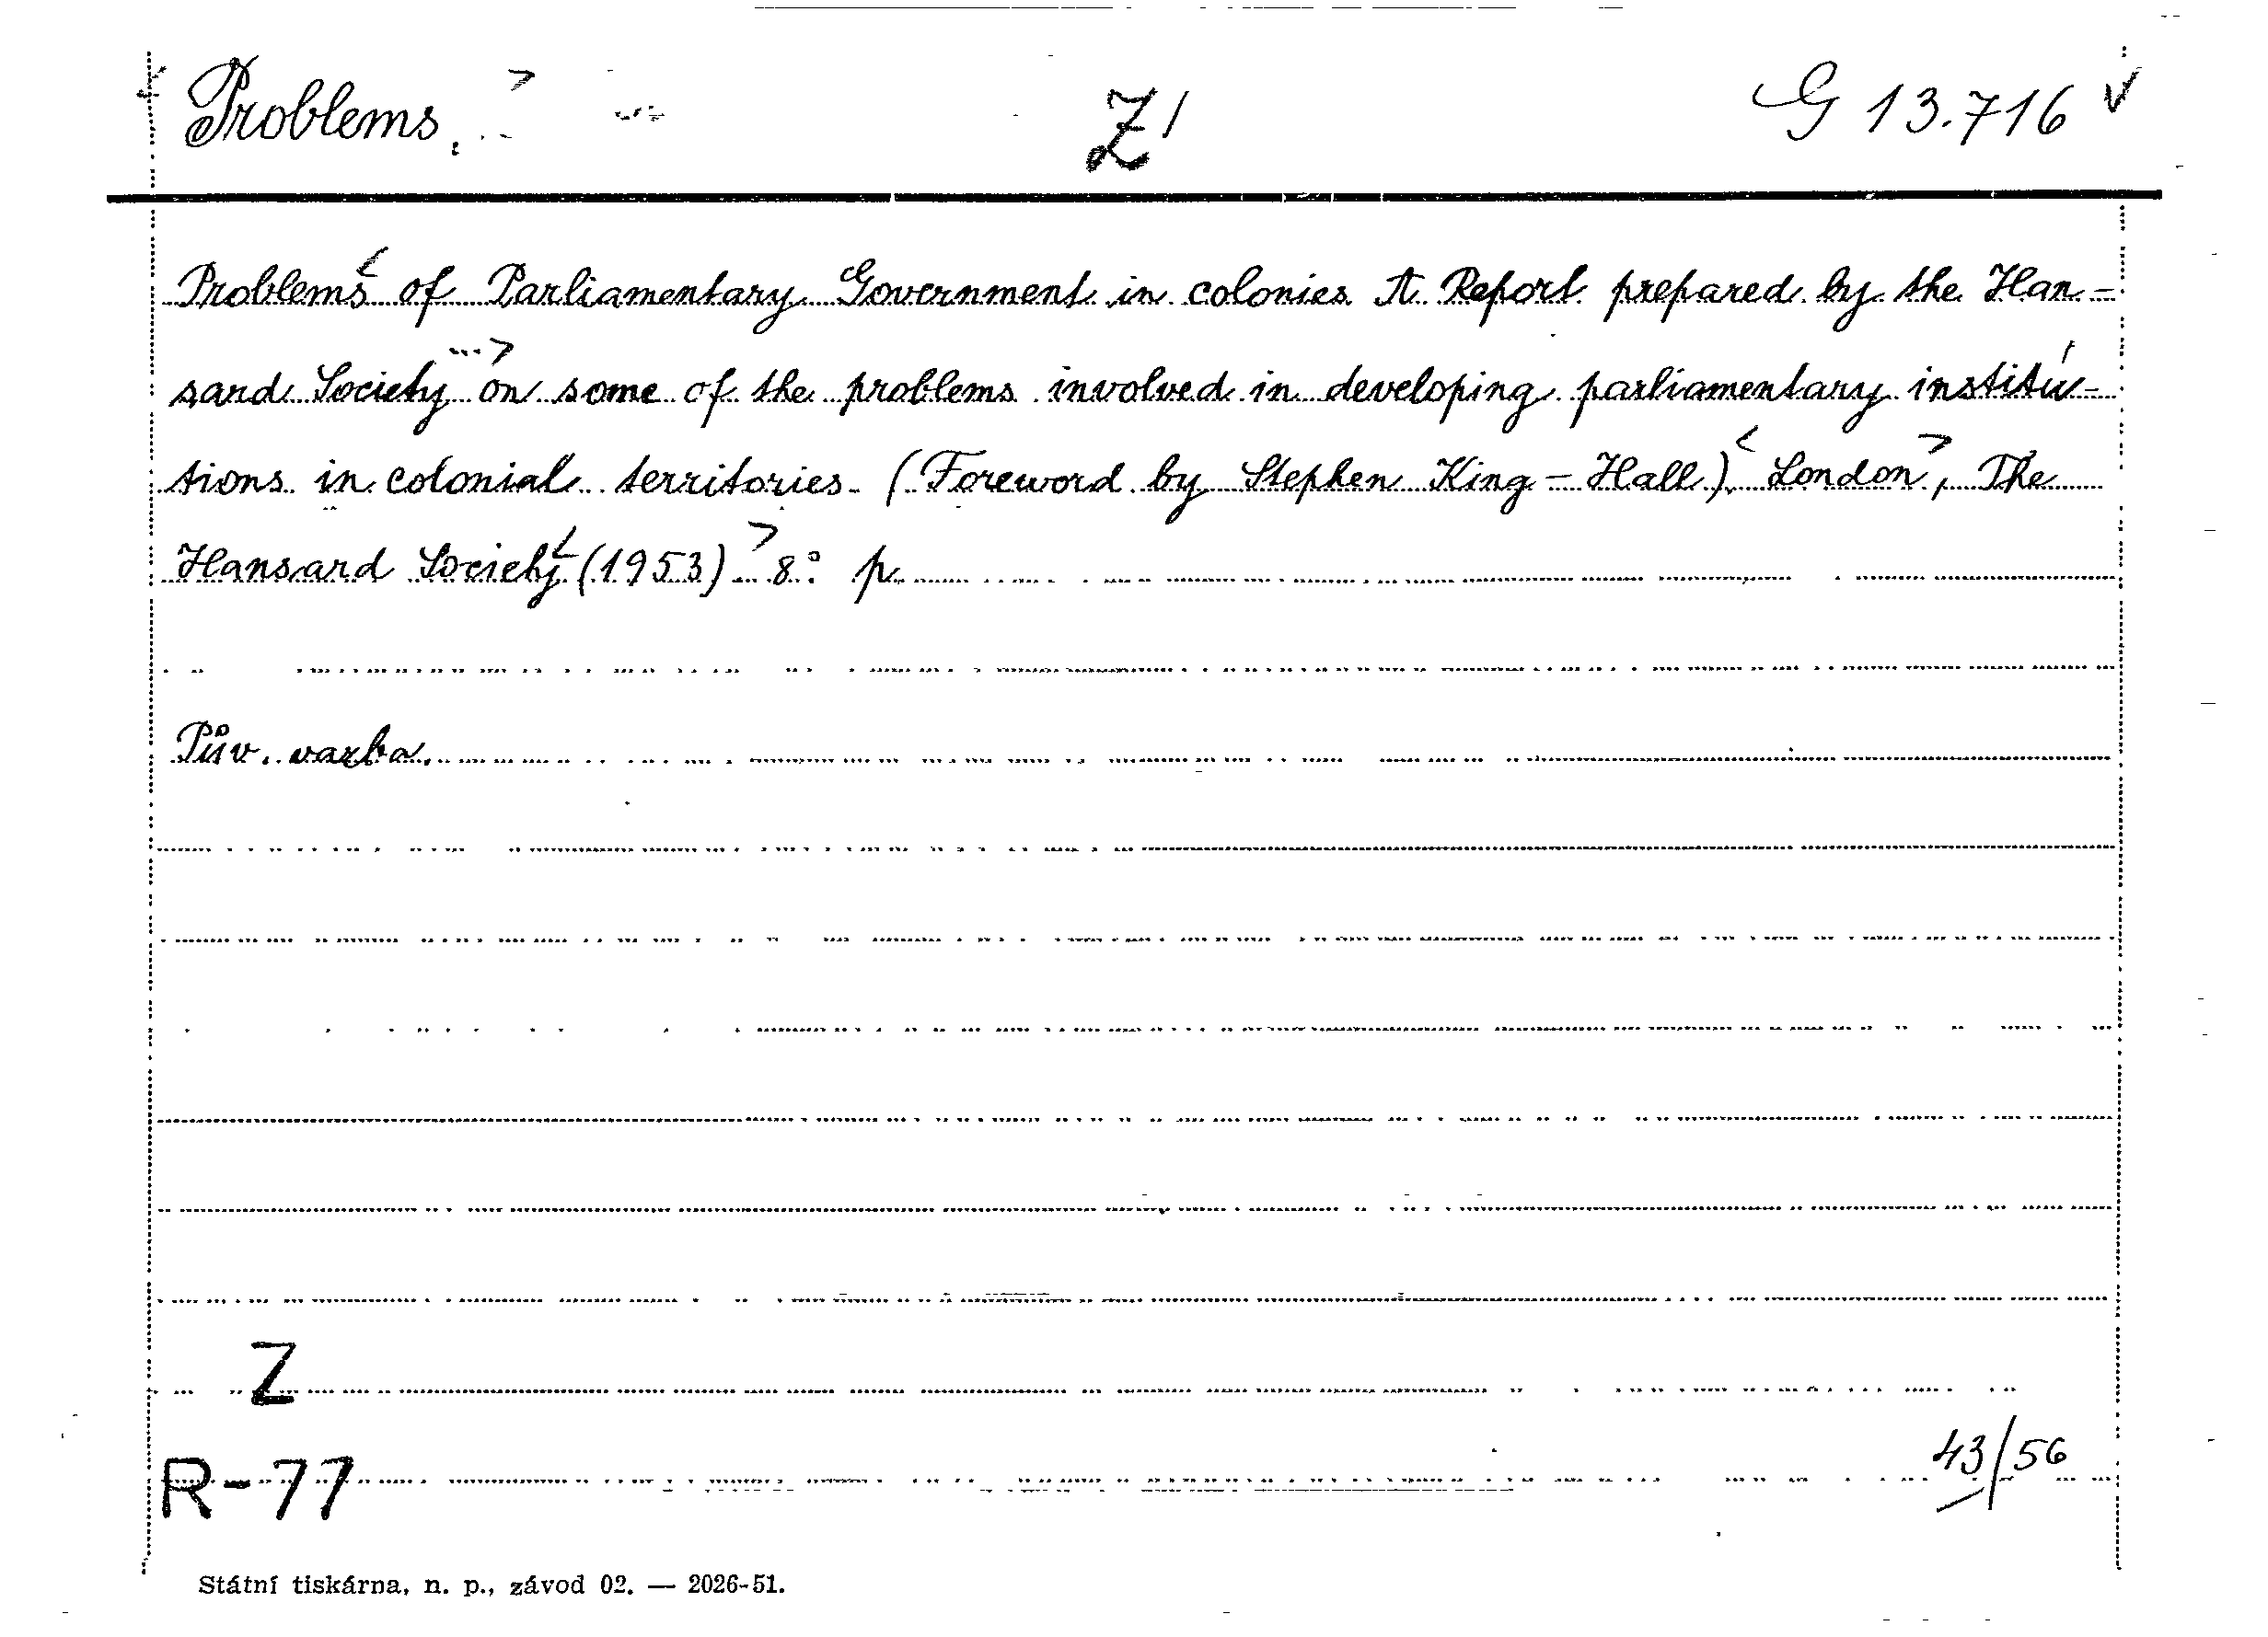 Problems. Z/ G 13.716
Problems of Parliamentary Government in colonies A Report prepared by the Han-
sard Society on some of the problems involved in developing parliamentary institu-
tions in colonial territories. (Foreword by Stephen King-Hall) London, The
Hansard Society (1953) 8° p.
Pův. vazba.
Z
R-77 43/56
Státní tiskárna, n. p., závod 02. — 2026-51.